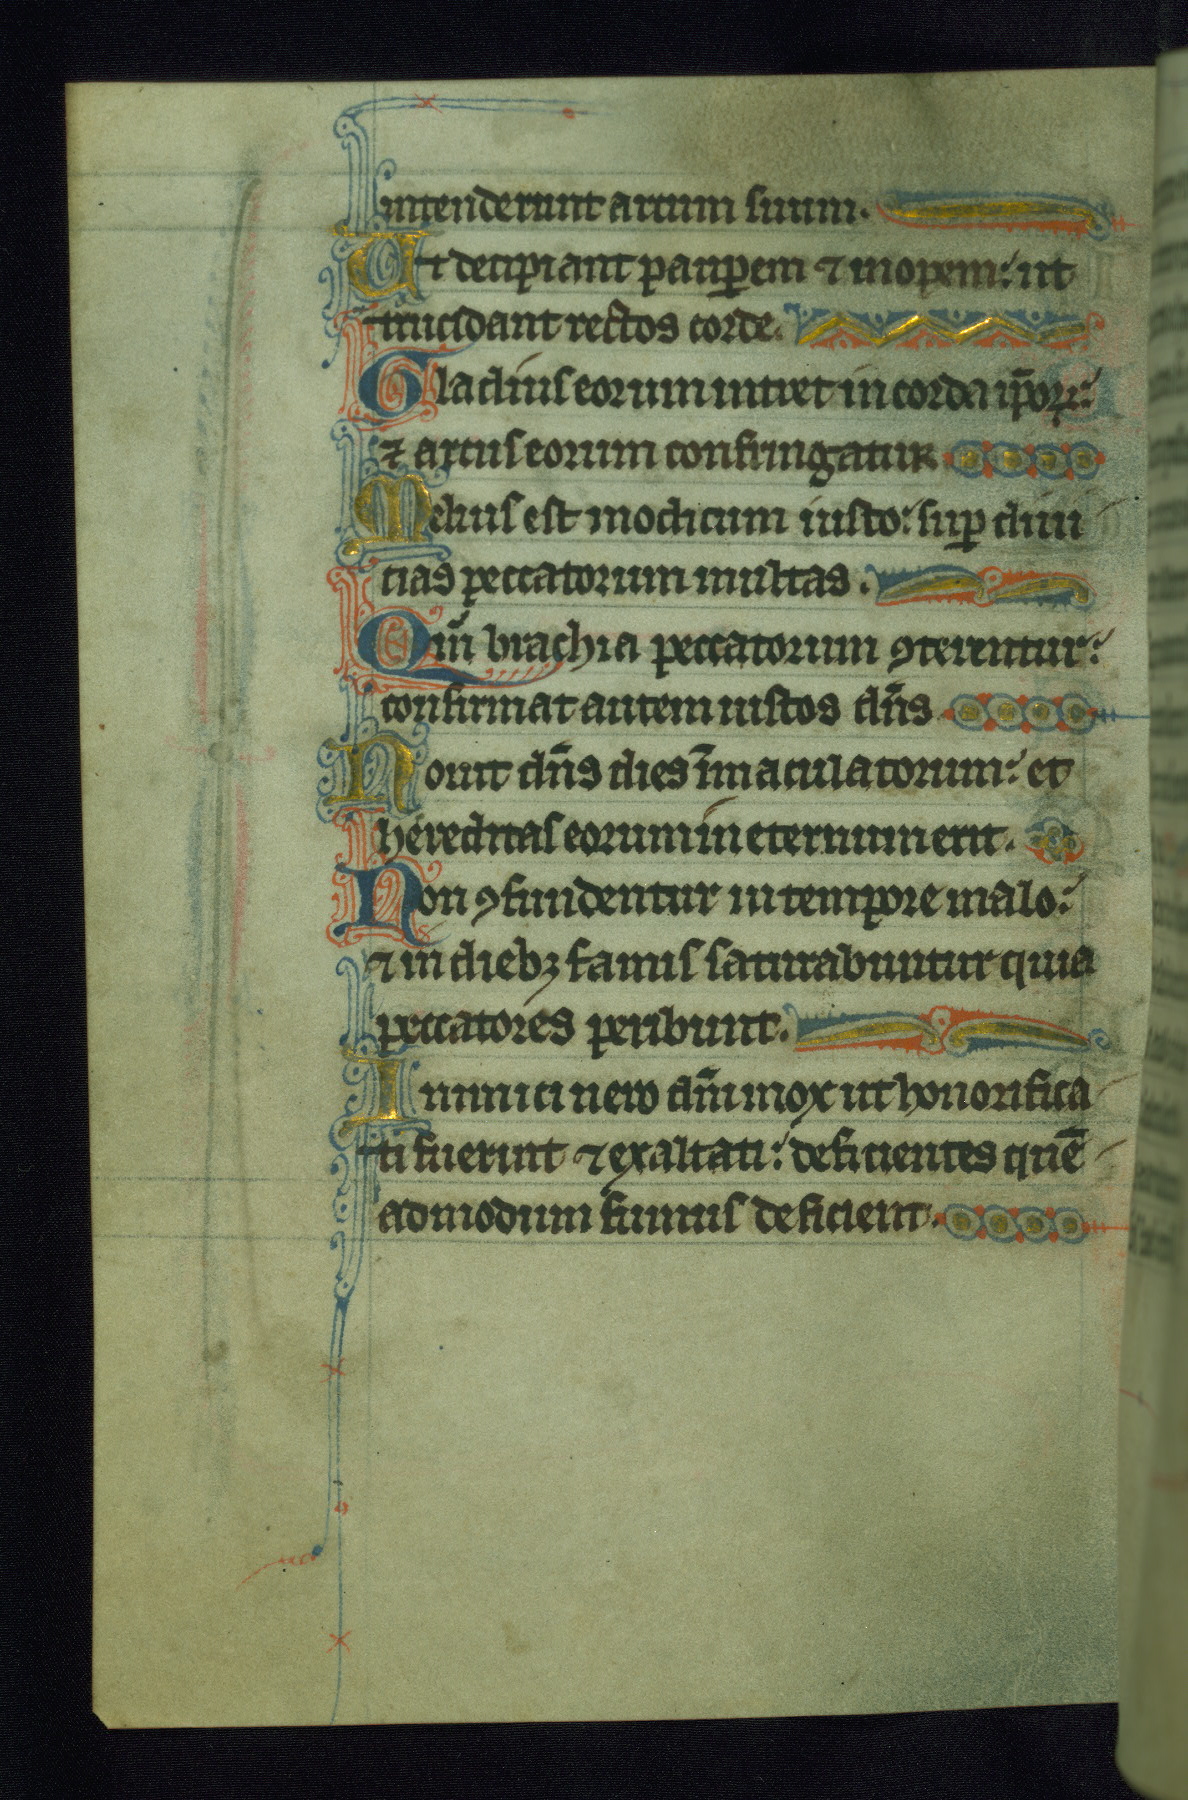 intenderunt arcum suum.
Ut decipiant paup̲em ⁊ inopem: ut
trucidant rectos corde.
Gladius eorum intret in corda ip̄oꝝ:
⁊ arcus eorum confringatur
Melius est modicum iusto: sup̲ diui
cias peccatorum multas.
Qm̄ brachia peccatorum ꝯterentur:
confirmat autem iustos dn̄s
Nouit dn̄s dies īmaculatorum: et
hereditas eorum in eternum erit.
Non ꝯfundentur in tempore malo:
⁊ in diebꝫ famis saturabuntur quia
peccatores peribunt.
Inimici uero dn̄i mox ut honorifica
ti fuerint ⁊ exaltati: deficientes quē
admodum fumus deficient.